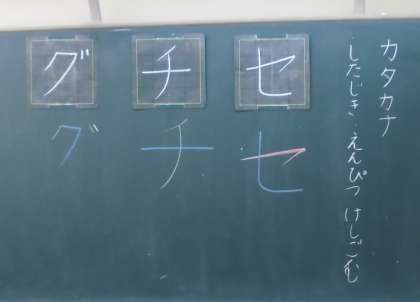 カタカナ
したじき えんぴつ けしごむ
セ チ グ
セ チ グ